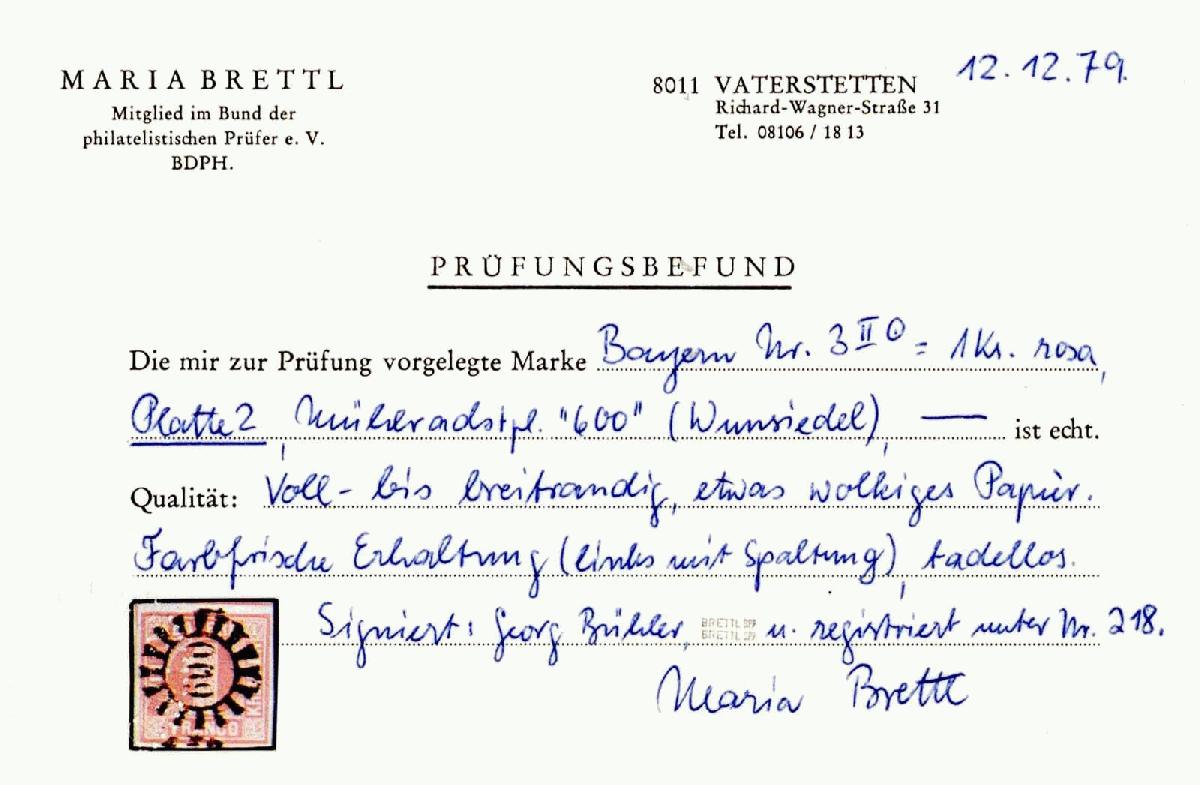 MARIA BRETTL
Mitglied im Bund der
philatelistischen Prüfer e. V.
BDPH.
8011 VATERSTETTEN
Richard-Wagner-Straße 31
Tel. 08106 / 18 13
12.12.79.
PRÜFUNGSBEFUND
Die mir zur Prüfung vorgelegte Marke Bayern Nr. 3 II ⊙ = 1 Kr. rosa,
Platte 2, Mühlradstpl. "600" (Wunsiedel), — ist echt.
Qualität: Voll- bis breitrandig, etwas wolkiges Papier.
Farbfrische Erhaltung (links mit Spaltung), tadellos.
Signiert: Georg Bühler, BRETTL BPP u. registriert unter Nr. 218.
BRETTL BPP
Maria Brettl
600
FRANCO